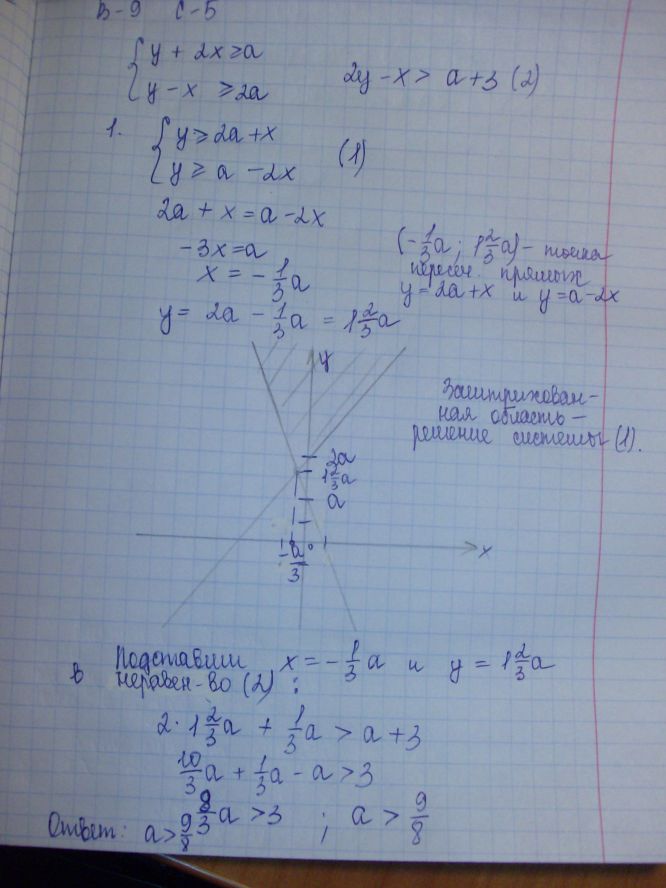 В-9 С-5
{ y + 2x ≥ a
y - x ≥ 2a
2y - x > a + 3 (2)
1. { y ≥ 2a + x
y ≥ a - 2x
(1)
2a + x = a - 2x
-3x = a
x = -1/3 a
(-1/3 a; 1 2/3 a) - точка
пересеч. прямых
y = 2a + x и y = a - 2x
y = 2a - 1/3 a = 1 2/3 a
y
Заштрихован-
ная область -
решение системы (1).
2a
1 2/3 a
a
1
-a/3 0 1 x
Подставим x = -1/3 a и y = 1 2/3 a
в неравен-во (2) :
2 · 1 2/3 a + 1/3 a > a + 3
10/3 a + 1/3 a - a > 3
8/3 a > 3 ; a > 9/8
Ответ: a > 9/8